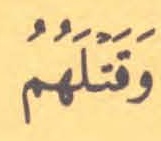 وَقَتَلَهُمُ